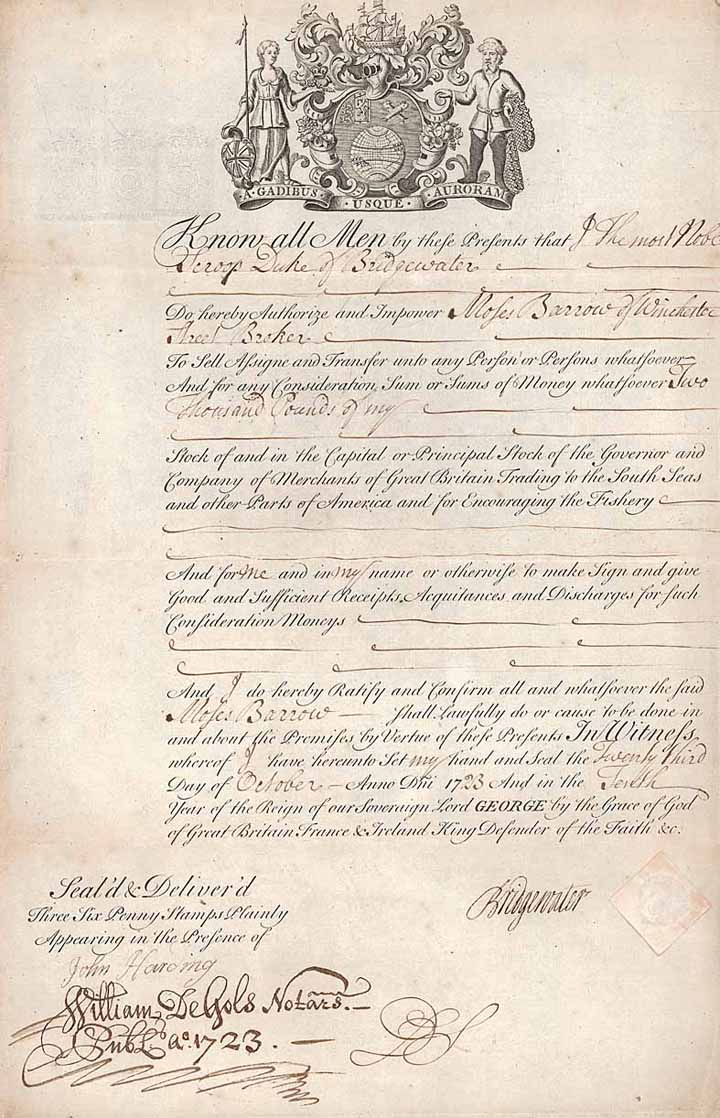 A · GADIBUS · USQUE · AURORAM
Know all Men by these Presents that I The most Noble
Scroop Duke of Bridgewater
Do hereby Authorize and Impower Moses Barrow of Winchester
Street Broker
To Sell Assigne and Transfer unto any Person or Persons whatsoever
And for any Consideration, Sum or Sums of Money whatsoever Two
Thousand Pounds of my
Stock of and in the Capital or Principal Stock of the Governor and
Company of Merchants of Great Britain Trading to the South Seas
and other Parts of America and for Encouraging the Fishery
And for me and in my name or otherwise to make Sign and give
Good and Sufficient Receipts, Acquitances and Discharges for such
Consideration Moneys
And I do hereby Ratify and Confirm all and whatsoever the said
Moses Barrow — shall Lawfully do or cause to be done in
and about the Premises by Vertue of these Presents In Witness
whereof I have hereunto Set my hand and Seal the Twenty Third
Day of October — Anno Dni 1723 And in the Tenth
Year of the Reign of our Soveraign Lord GEORGE by the Grace of God
of Great Britain France & Ireland King Defender of the Faith &c.
Seal'd & Deliver'd
Three Six Penny Stamps Plainly
Appearing in the Presence of
Bridgewater
John Harding
William DeGols Notars. —
Publ. ao. 1723. —